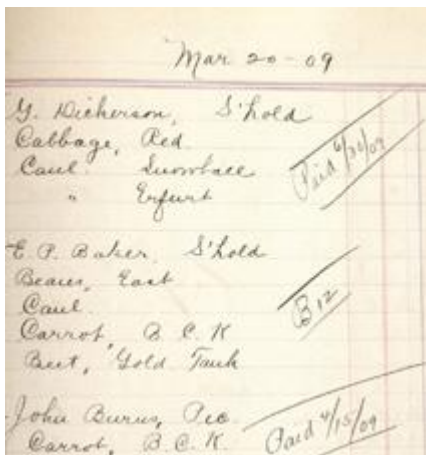 Mar 20-09
G. Dickerson, S'hold
Cabbage, Red
Caul. Snowball
" Erfurt
Paid 6/30/09
E. P. Baker, S'hold
Beans, East
Caul
Carrot, B. C. K
B 12
Beet, Gold Tank
John Burns, Pec
Carrot, B. C. K.
Paid 4/15/09